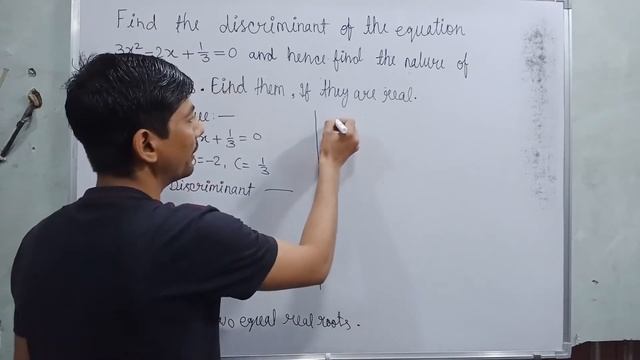 Find the discriminant of the equation
3x² - 2x + 1/3 = 0 and hence find the nature of
. Find them, If they are real.
:—
x + 1/3 = 0
= -2, C = 1/3
Discriminant —
equal real roots.